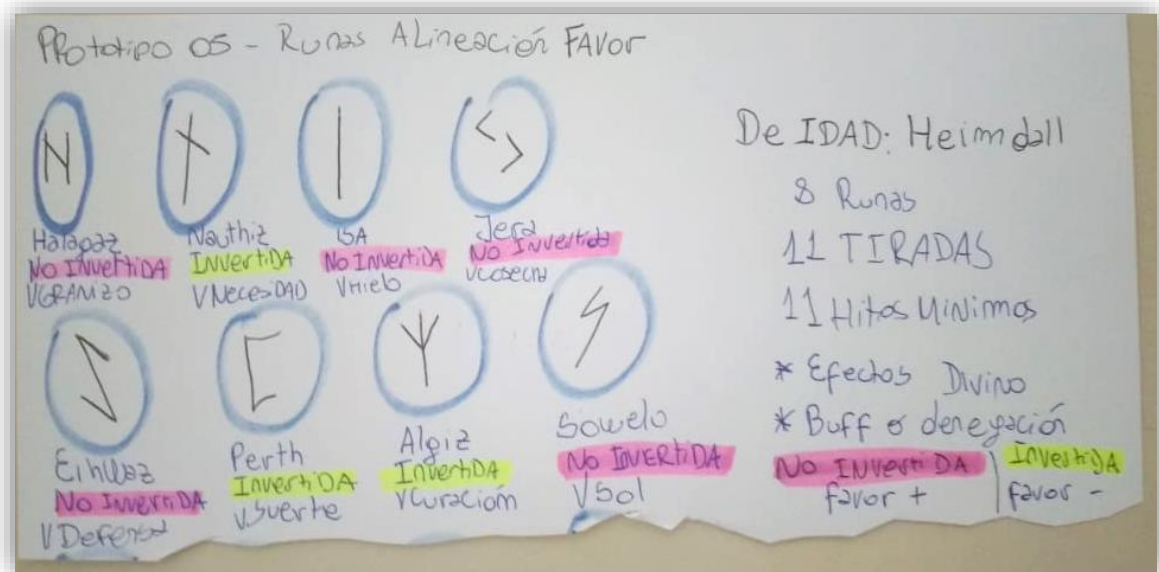 PROtotipo 05 - RUNAS ALINEACIÓN FAVOR
Halagaz
No INVERTIDA
VGRANIZO
Nauthiz
INVERTIDA
VNecesIDAD
ISA
No INVERTIDA
VHielo
Jera
No INVERTIDA
VCosecha
Eihwaz
No INVERTIDA
VDefensa
Perth
INVERTIDA
VSuerte
Algiz
INVERTIDA
VCuraciom
Sowelo
No INVERTIDA
VSol
DeIDAD: Heimdall
8 Runas
11 TIRADAS
11 Hitos MíNimos
* Efectos Divino
* Buff o denegación
No INVERTIDA
favor +
INVERTIDA
favor -